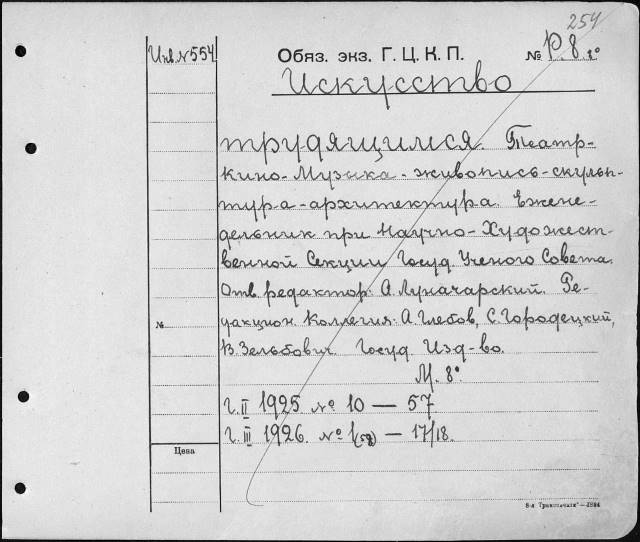 254
Инв. N 554
Обяз. экз. Г. Ц. К. П. № Р. 8. 8°
Искусство
трудящимся. Театр-
кино-Музыка-живопись-скульп-
тура-архитектура. Ежене-
дельник при Научно-Художест-
венной Секции Госуд. Ученого Совета.
Отв. редактор: А. Луначарский. Ре-
дакцион. Коллегия: А. Глебов, С. Городецкий,
В. Зельбович. Госуд. Изд-во.
№
М. 8°
Г. II 1925 № 10 — 57
Г. III 1926. № 1(58) — 17/18.
Цена
8-я "Транспечати"—2884